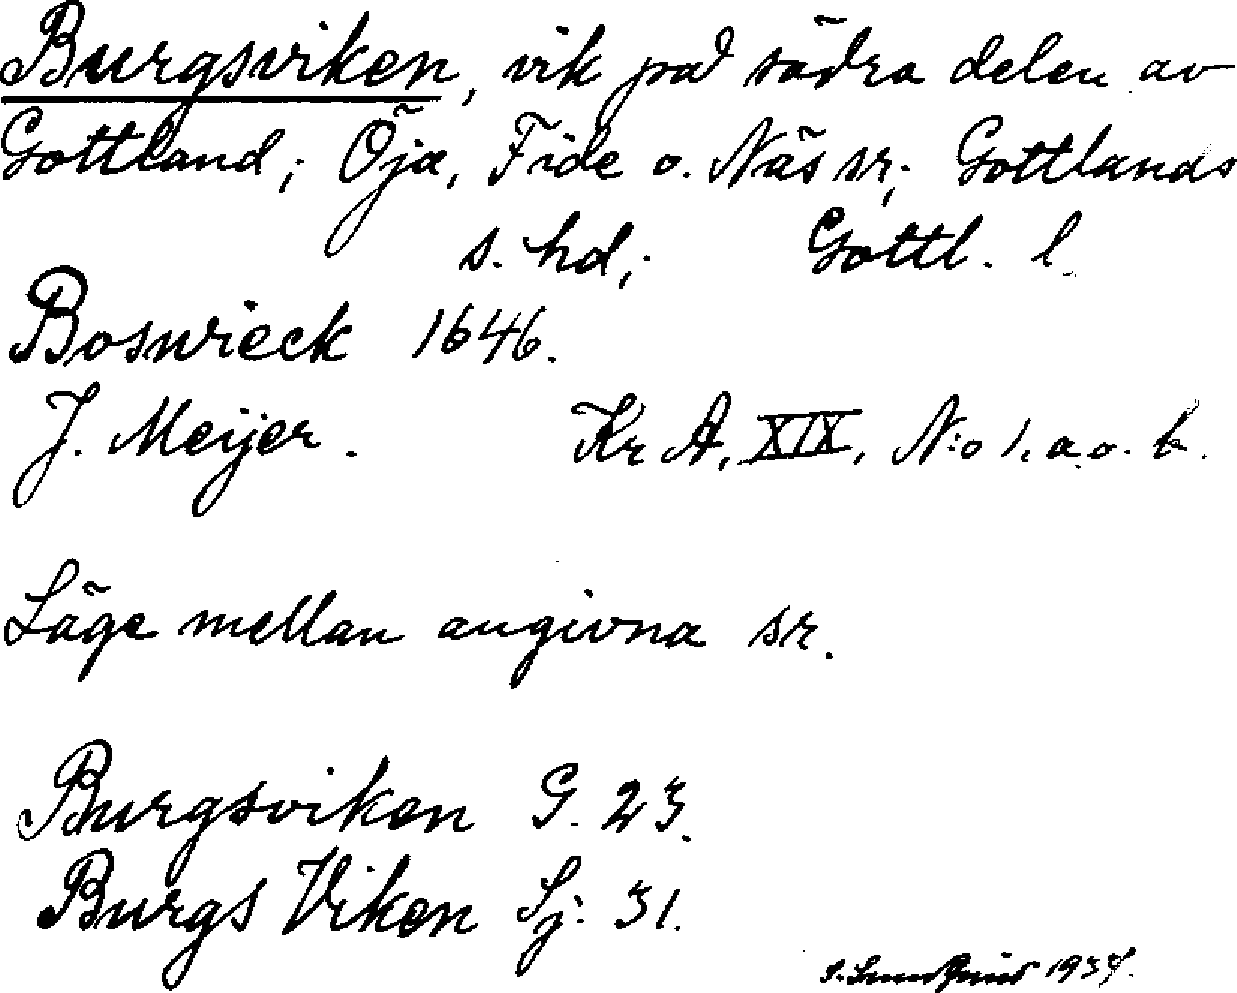 Burgsviken, vik på södra delen av
Gottland; Öja, Fide o. Näs sr; Gottlands
s. hd; Gottl. l.
Boswieck 1646.
J. Meijer. Kr A, XIX, N:o 1. a. o. b.
Läge mellan angivna sr.
Burgsviken G. 23.
Burgs Viken Sj. 31.
S. 1937.